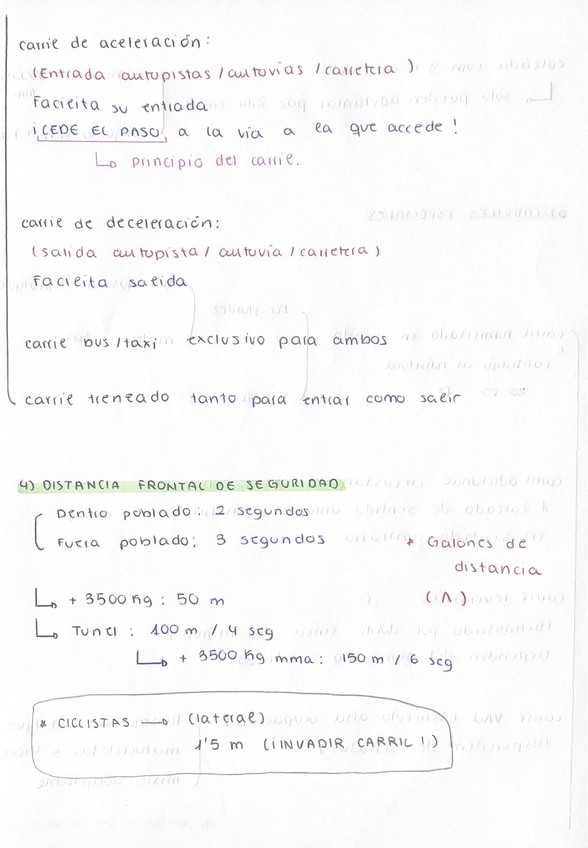 carril de aceleración:
(Entrada autopistas / autovías / carretera)
Facilita su entrada
¡CEDE EL PASO, a la vía a la que accede!
↳ principio del carril.
carril de deceleración:
(salida autopista / autovía / carretera)
Facilita salida
carril bus / taxi exclusivo para ambos
carril trenzado tanto para entrar como salir
4) DISTANCIA FRONTAL DE SEGURIDAD
Dentro poblado: 2 segundos
Fuera poblado: 3 segundos
* Galones de
distancia
(Λ)
↳ + 3500 Kg : 50 m
↳ Tunel : 100 m / 4 seg
↳ + 3500 Kg mma: 150 m / 6 seg
* CICLISTAS → (lateral)
1'5 m (¡INVADIR CARRIL!)